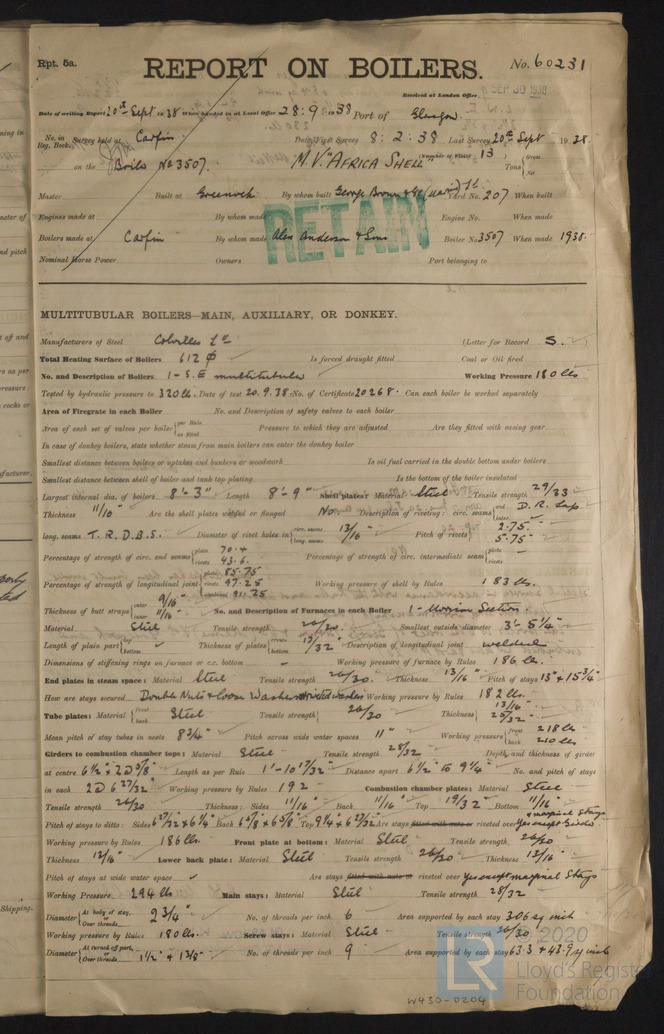 Rpt. 5a.
REPORT ON BOILERS.
No. 60231
Received at London Office SEP 30 1938
Date of writing Report 20th Sept 1938 When handed in at Local Office 28:9:1938 Port of Glasgow
No. in Reg. Book. Survey held at Carfin Date, First Survey 8:2:38 Last Survey 20th Sept 1938
on the Boiler No 3507. M.V. "AFRICA SHELL" (Number of Visits 13) Tons {Gross Net
Master Built at Greenock By whom built George Brown & Co Yard No. 207 When built
Engines made at By whom made Engine No. When made
Boilers made at Carfin By whom made Alex Anderson & Sons Boiler No. 3507 When made 1938.
Nominal Horse Power Owners Port belonging to
RETAIN
MULTITUBULAR BOILERS—MAIN, AUXILIARY, OR DONKEY.
Manufacturers of Steel Colvilles Ld (Letter for Record S.
Total Heating Surface of Boilers 612 Is forced draught fitted Coal or Oil fired
No. and Description of Boilers 1 - S.E multitubular Working Pressure 180 lbs
Tested by hydraulic pressure to 320 lbs. Date of test 20.9.38. No. of Certificate 20268. Can each boiler be worked separately
Area of Firegrate in each Boiler No. and Description of safety valves to each boiler
Area of each set of valves per boiler {per Rule as fitted Pressure to which they are adjusted Are they fitted with easing gear
In case of donkey boilers, state whether steam from main boilers can enter the donkey boiler
Smallest distance between boilers or uptakes and bunkers or woodwork Is oil fuel carried in the double bottom under boilers
Smallest distance between shell of boiler and tank top plating Is the bottom of the boiler insulated
Largest internal dia. of boilers 8'-3" Length 8'-9" Shell plates: Material Steel Tensile strength 29/33
Thickness 11/16" Are the shell plates welded or flanged No. Description of riveting: circ. seams {end D.R. Lap inter.
long. seams T.R.D.B.S. Diameter of rivet holes in {circ. seams long. seams 13/16" Pitch of rivets {2.75" 5.75"
Percentage of strength of circ. end seams {plate 70.4 rivets 43.6. Percentage of strength of circ. intermediate seam {plate rivets
Percentage of strength of longitudinal joint {plate 85.75 rivets 97.25 combined 91.25 Working pressure of shell by Rules 183 lbs.
Thickness of butt straps {outer 9/16" inner 11/16" No. and Description of Furnaces in each Boiler 1 - Morison Section.
Material Steel Tensile strength 26/30. Smallest outside diameter 3'-5¼"
Length of plain part {top bottom Thickness of plates {crown bottom 13/32" Description of longitudinal joint welded
Dimensions of stiffening rings on furnace or c.c. bottom Working pressure of furnace by Rules 186 lbs.
End plates in steam space: Material Steel Tensile strength 26/30. Thickness 13/16" Pitch of stays 15" x 15¾"
How are stays secured Double Nuts & loose Washers Working pressure by Rules 182 lbs.
Tube plates: Material {front back Steel Tensile strength { 26/30 Thickness {13/16" 25/32"
Mean pitch of stay tubes in nests 8¾" Pitch across wide water spaces 11" Working pressure {front 218 lbs back 210 lbs
Girders to combustion chamber tops: Material Steel Tensile strength 28/32 Depth and thickness of girder
at centre 6½" x 2 @ 5/8" Length as per Rule 1'-10 17/32" Distance apart 6½" to 9¼" No. and pitch of stays
in each 2 @ 6 27/32" Working pressure by Rules 192 Combustion chamber plates: Material Steel
Tensile strength 26/30 Thickness: Sides 11/16" Back 11/16" Top 19/32" Bottom 11/16"
Pitch of stays to ditto: Sides 6 27/32 x 6¼" Back 6 5/8 x 6 5/8" Top 9¼ x 6 27/32 Are stays fitted with nuts or riveted over Yes except Girders & marginal Stays
Working pressure by Rules 186 lbs. Front plate at bottom: Material Steel Tensile strength 26/30
Thickness 13/16" Lower back plate: Material Steel Tensile strength 26/30 Thickness 13/16"
Pitch of stays at wide water space Are stays fitted with nuts or riveted over Yes except marginal Stays
Working Pressure 294 lbs Main stays: Material Steel Tensile strength 28/32
Diameter {At body of stay, or Over threads 2¾" No. of threads per inch 6 Area supported by each stay 306 sq inch
Working pressure by Rules 180 lbs. Screw stays: Material Steel Tensile strength 26/30
Diameter {At turned off part, or Over threads 1½" & 1 3/8" No. of threads per inch 9 Area supported by each stay 63.3 & 43.9 sq inch
© 2020
LR
Lloyd's Register
Foundation
W430-0204